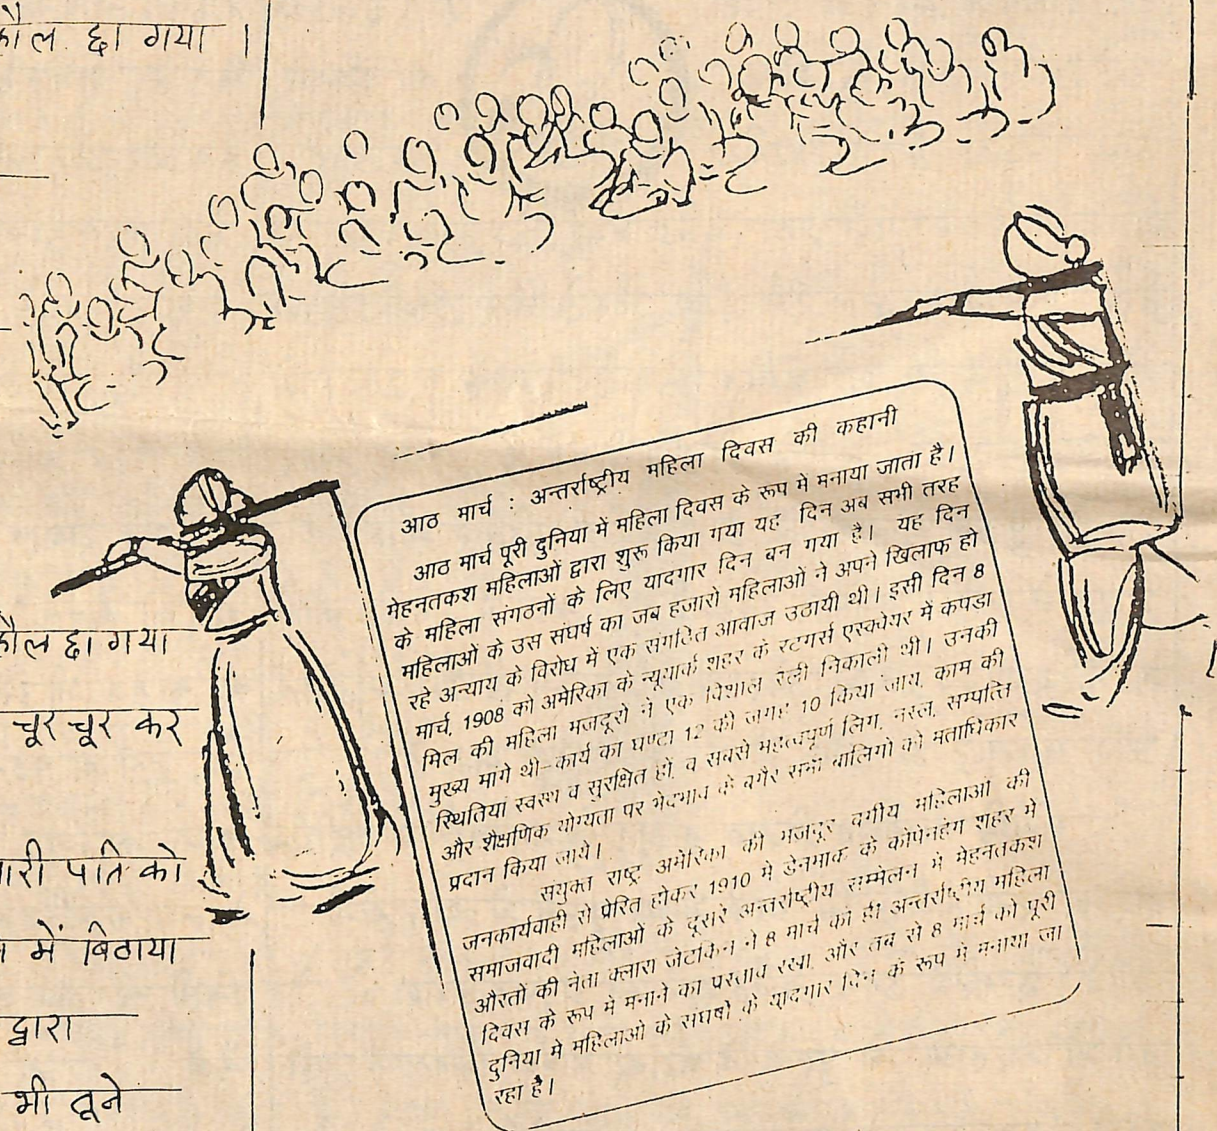 कौल छा गया ।
आठ मार्च : अन्तर्राष्ट्रीय महिला दिवस की कहानी
आठ मार्च पूरी दुनिया में महिला दिवस के रूप में मनाया जाता है।
मेहनतकश महिलाओं द्वारा शुरू किया गया यह दिन अब सभी तरह
के महिला संगठनों के लिए यादगार दिन बन गया है। यह दिन
महिलाओं के उस संघर्ष का जब हजारो महिलाओं ने अपने खिलाफ हो
रहे अन्याय के विरोध में एक संगठित आवाज उठायी थी। इसी दिन 8
मार्च, 1908 को अमेरिका के न्यूयार्क शहर के रटगर्स एस्क्वेयर में कपडा
मिल की महिला मजदूरो ने एक विशाल रैली निकाली थी। उनकी
मुख्य मांगे थी-कार्य का घण्टा 12 की जगह 10 किया जाय, काम की
स्थितियां स्वस्थ व सुरक्षित हों, व सबसे महत्वपूर्ण लिंग, नस्ल, सम्पत्ति
और शैक्षणिक योग्यता पर भेदभाव के बगैर सभी बालिगो को मताधिकार
प्रदान किया जाये।
संयुक्त राष्ट्र अमेरिका की मजदूर वर्गीय महिलाओं की
जनकार्यवाही से प्रेरित होकर 1910 मे डेनमार्क के कोपेनहेग शहर मे
समाजवादी महिलाओं के दूसरे अन्तर्राष्ट्रीय सम्मेलन मे मेहनतकश
औरतों की नेता क्लारा जेटकिन ने 8 मार्च को ही अन्तर्राष्ट्रीय महिला
दिवस के रूप मे मनाने का प्रस्ताव रखा, और तब से 8 मार्च को पूरी
दुनिया मे महिलाओ के संघर्षो के यादगार दिन के रूप मे मनाया जा
रहा है।
कौल छा गया
चूर चूर कर
पति को
में बिठाया
द्वारा
भी तूने